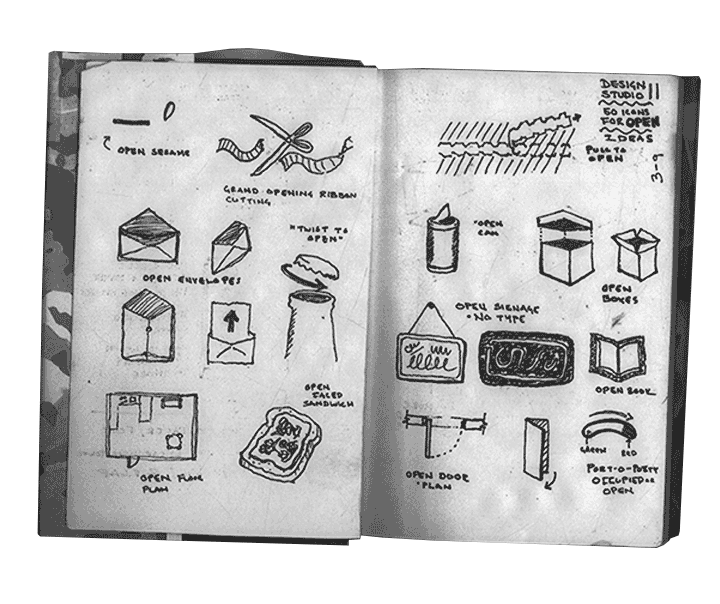 OPEN SESAME
GRAND OPENING RIBBON
CUTTING
OPEN ENVELOPES
"TWIST TO
OPEN"
OPEN FLOOR
PLAN
OPEN
FACED
SANDWICH
DESIGN
STUDIO II
50 ICONS
FOR OPEN
IDEAS
3-9
PULL TO
OPEN
OPEN
CAN
OPEN
BOXES
OPEN SIGNAGE
NO TYPE
OPEN BOOK
OPEN DOOR
PLAN
GREEN RED
PORT-O-POTTY
OCCUPIED OR
OPEN